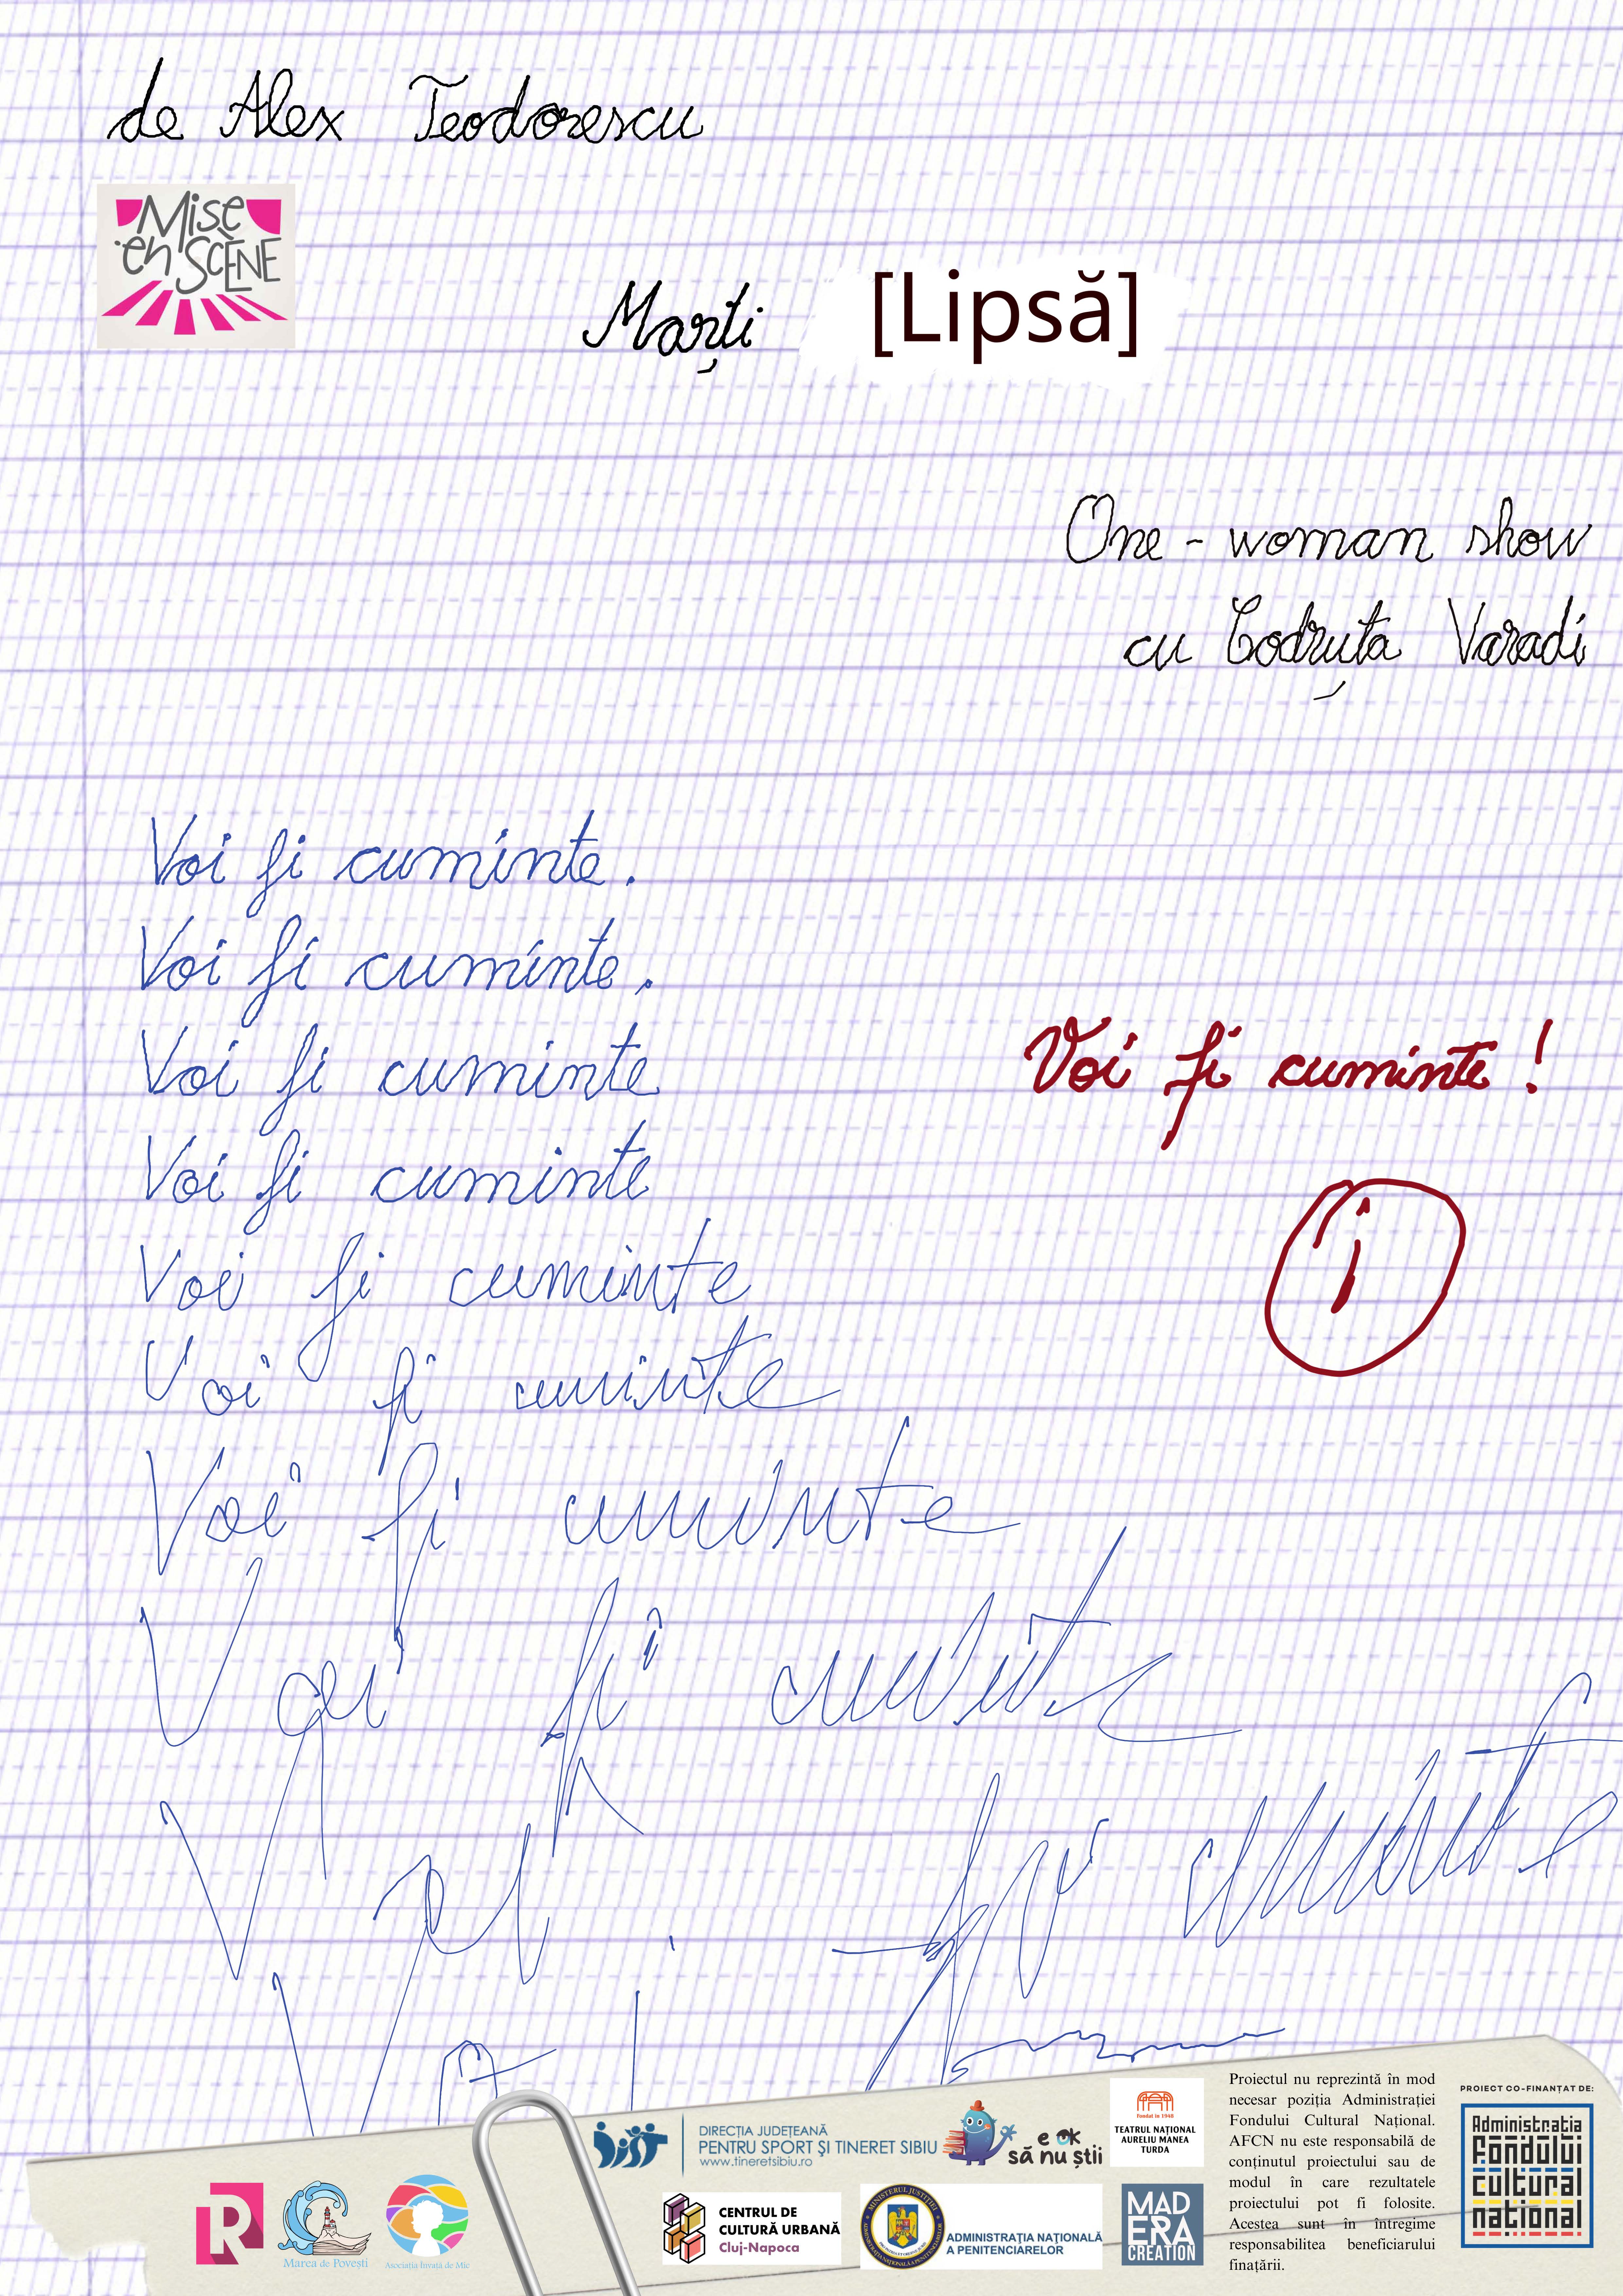 de Alex Teodorescu
Mise
en SCÈNE
Marți [Lipsă]
One-woman show
cu Codruța Varadi
Voi fi cuminte.
Voi fi cuminte.
Voi fi cuminte
Voi fi cuminte
Voi fi cuminte
Voi fi cuminte
Voi fi cuminte
Voi fi cuminte
Voi fi cuminte
Voi fi cuminte!
1
R
Marea de Povești
Asociația Învață de Mic
DIRECȚIA JUDEȚEANĂ
PENTRU SPORT ŞI TINERET SIBIU
www.tineretsibiu.ro
e ok
să nu știi
Fondat în 1948
TEATRUL NAȚIONAL
AURELIU MANEA
TURDA
CENTRUL DE
CULTURĂ URBANĂ
Cluj-Napoca
MINISTERUL JUSTIȚIEI
ADMINISTRAȚIA NAȚIONALĂ
A PENITENCIARELOR
MAD
ERA
CREATION
Proiectul nu reprezintă în mod
necesar poziția Administrației
Fondului Cultural Național.
AFCN nu este responsabilă de
conținutul proiectului sau de
modul în care rezultatele
proiectului pot fi folosite.
Acestea sunt în întregime
responsabilitea beneficiarului
finațării.
PROIECT CO-FINANȚAT DE:
Administrația
Fondului
cultural
național